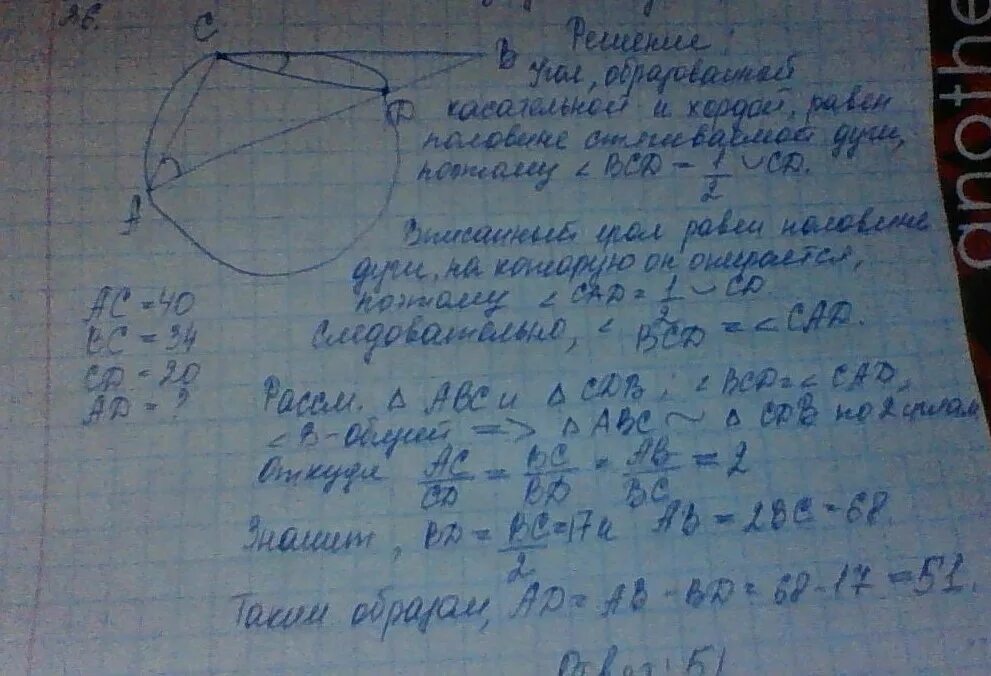 26.
C
B
D
A
Решение:
Угол, образованный
касательной и хордой, равен
половине стягиваемой дуги,
поэтому < BCD = 1/2 ◡CD.
Вписанный угол равен половине
дуги, на которую он опирается,
поэтому < CAD = 1/2 ◡ CD
Следовательно, < BCD = < CAD.
AC = 40
BC = 34
CD = 20
AD = ?
Рассм. △ ABC и △ CDB; < BCD = < CAD,
< B - общий => △ ABC ~ △ CDB по 2 углам
Откуда AC/CD = BC/BD = AB/BC = 2
Значит, BD = BC/2 = 17 и AB = 2BC = 68.
Таким образом, AD = AB - BD = 68 - 17 = 51.
Ответ: 51
anothe